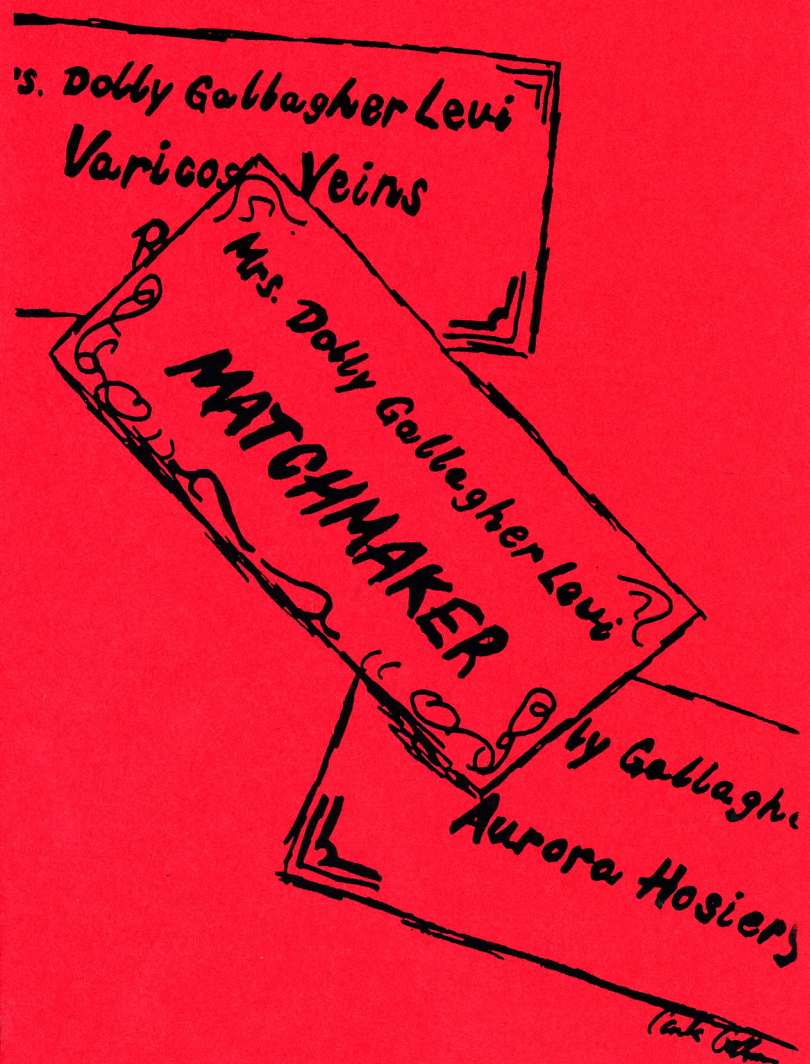 's. Dolly Gallagher Levi
Varicose Veins
R
Mrs. Dolly Gallagher Levi
MATCHMAKER
ly Gallaghe
Aurora Hosiery